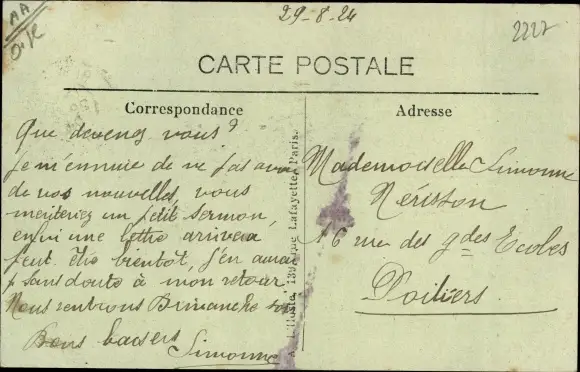 AA
29-8-24
2227
CARTE POSTALE
Correspondance
Adresse
Que devenez vous?
je m'ennuie de ne pas avoir
de vos nouvelles, vous
meriteriez un petit sermon,
enfin une lettre arrivera
peut être bientôt, j'en aurai
sans doute à mon retour
Nous rentrons Dimanche soir
Bons baisers
Simonne
A. L'Hoste, 139, rue Lafayette, Paris.
Mademoiselle Simonne
Nérisson
16 rue des gdes Ecoles
Poitiers